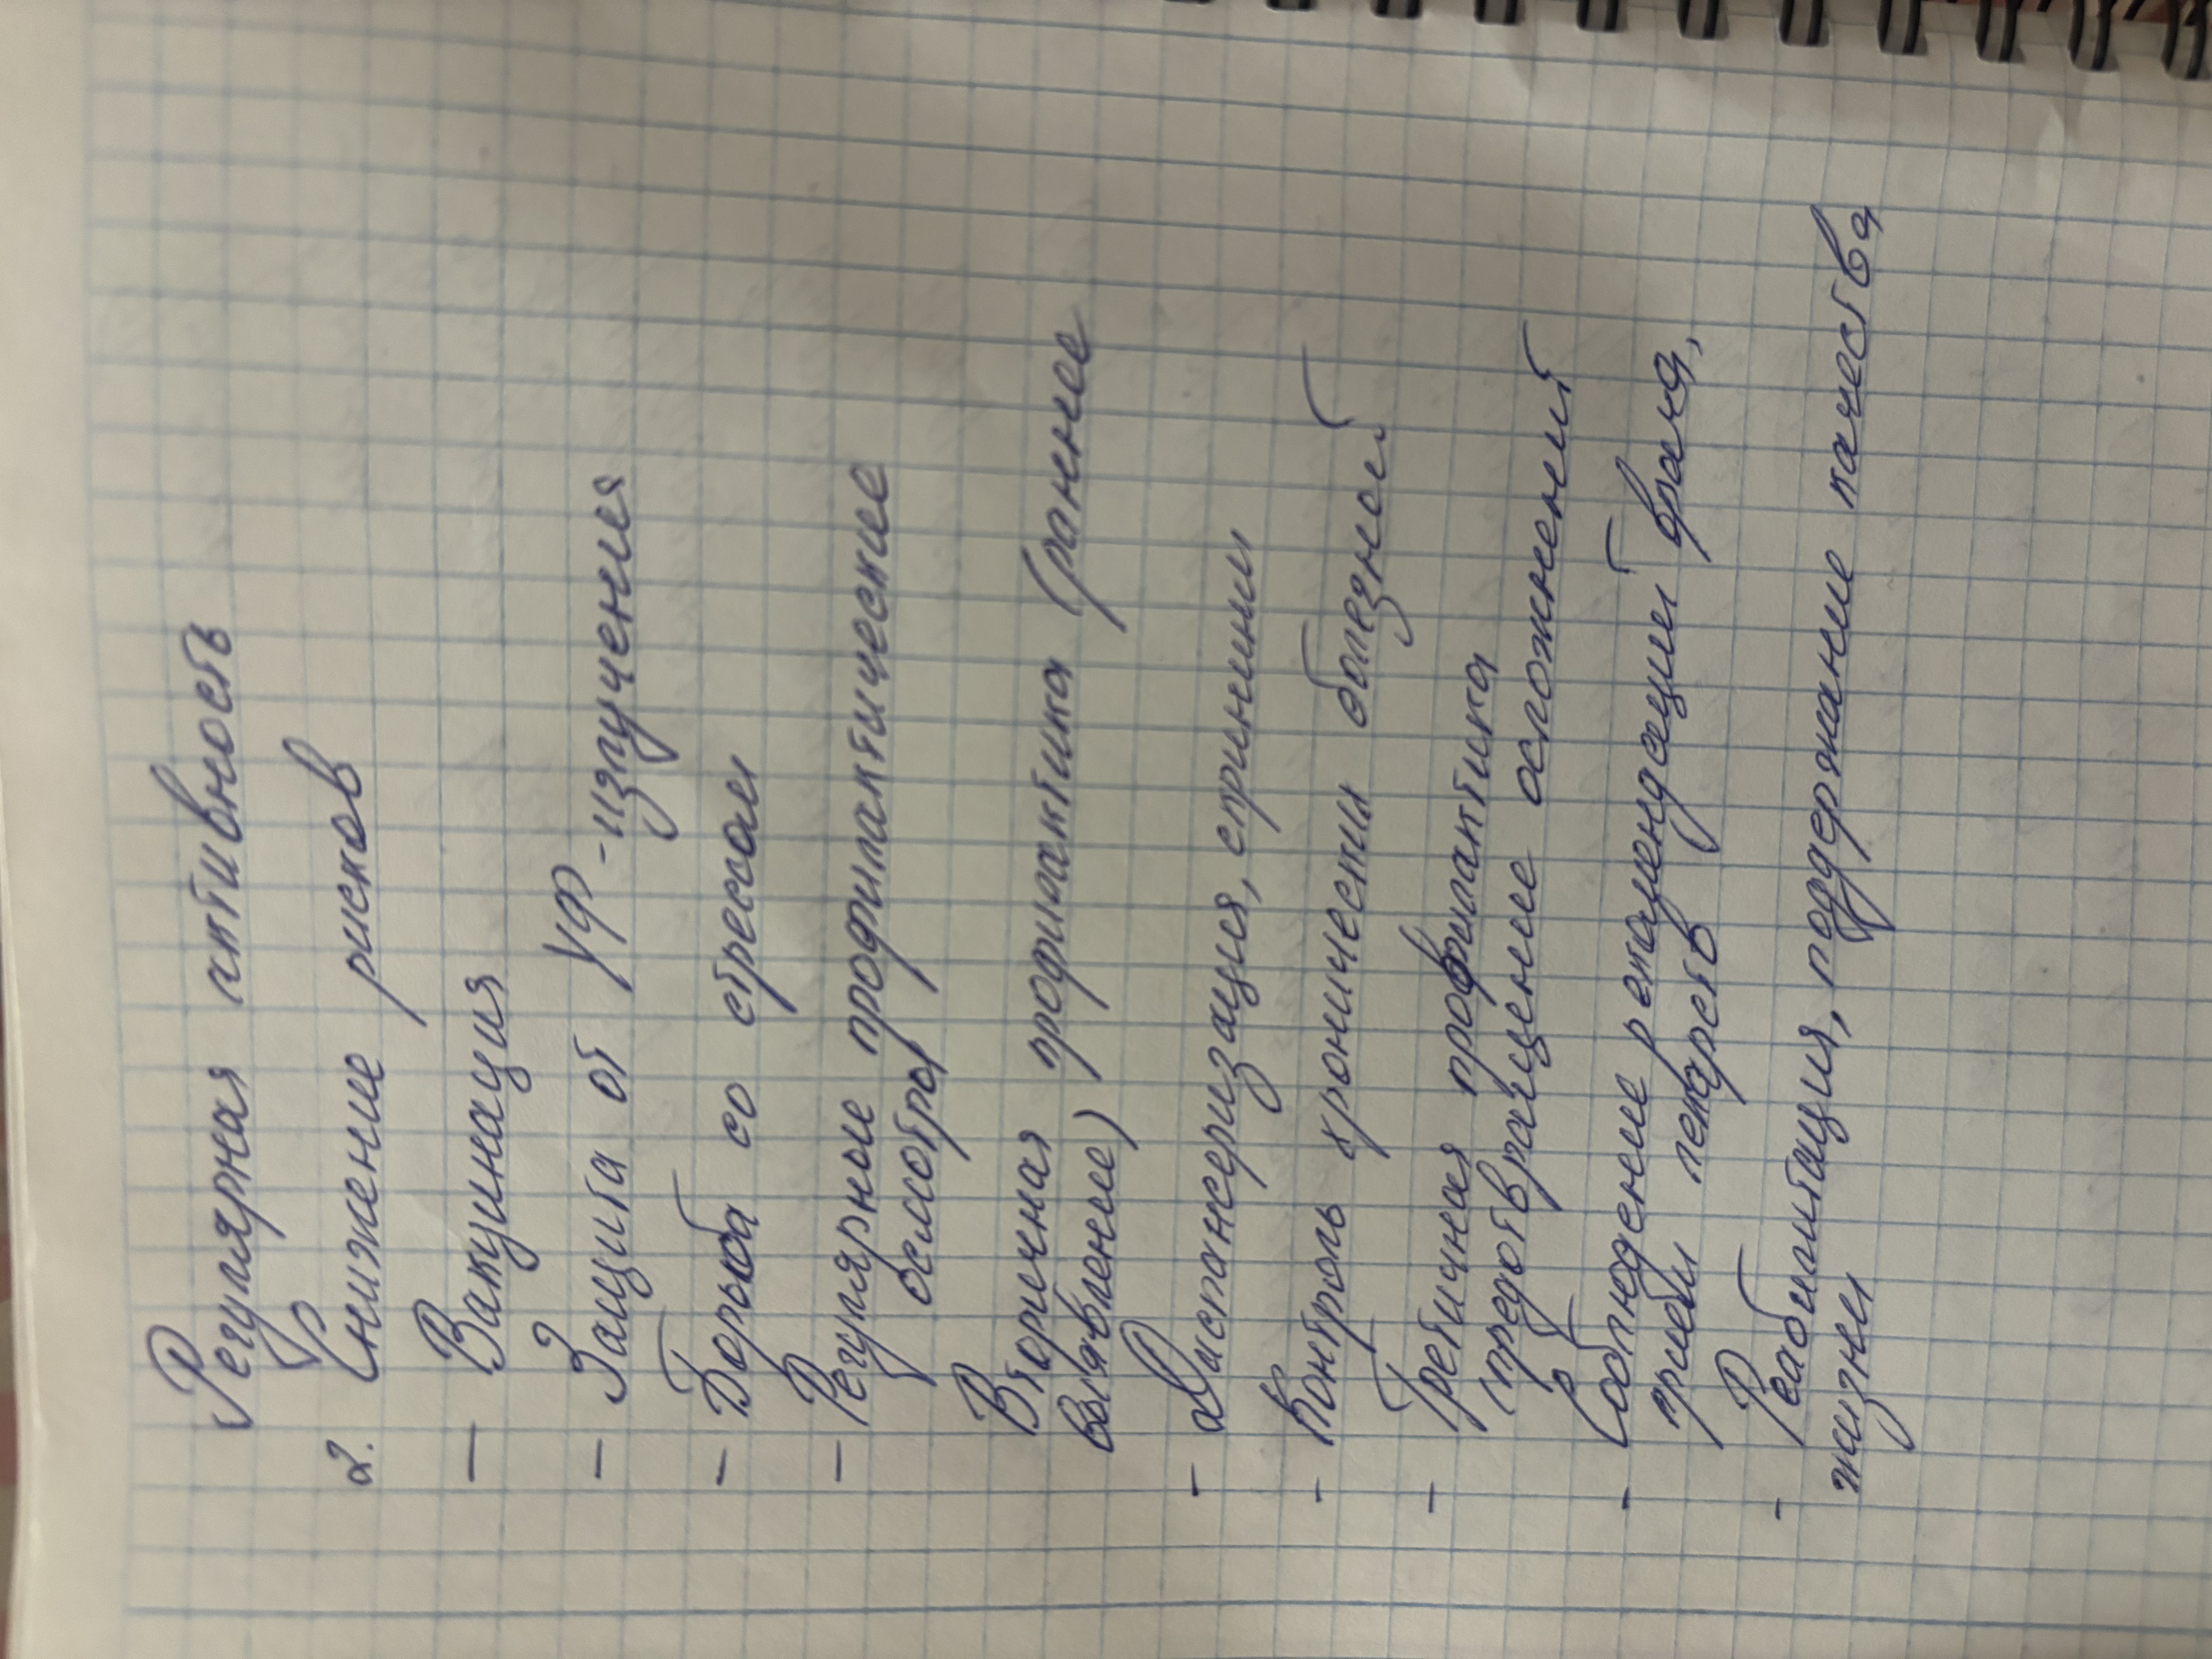 Регулярная активность
2. Снижение рисков
- Вакцинация
- Защита от УФ-излучения
- Борьба со стрессом
- Регулярные профилактические
осмотры
Вторичная профилактика (раннее
выявление)
- Диспансеризация, скрининги
- Контроль хронических болезней
- Третичная профилактика
(предотвращение осложнений
- Соблюдение рекомендаций врача,
приём лекарств
- Реабилитация, поддержание качества
жизни